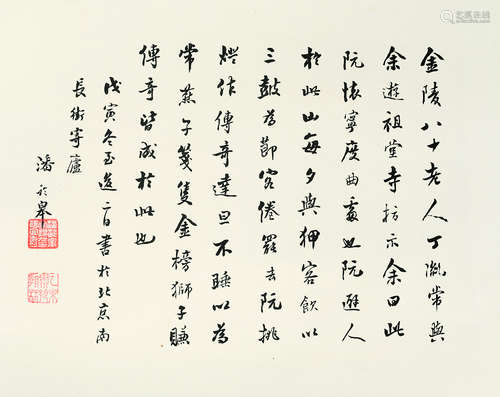 金陵八十老人丁胤常與
余遊祖堂寺指示余曰此
阮懷寧度曲處也阮避人
於此山每夕與狎客飲以
三鼓為節客倦罷去阮挑
燈作傳奇達旦不睡以為
常燕子箋雙金榜獅子賺
傳奇皆成於此也
戊寅冬至後二日書於北京南
長街寄廬
潘齡皋